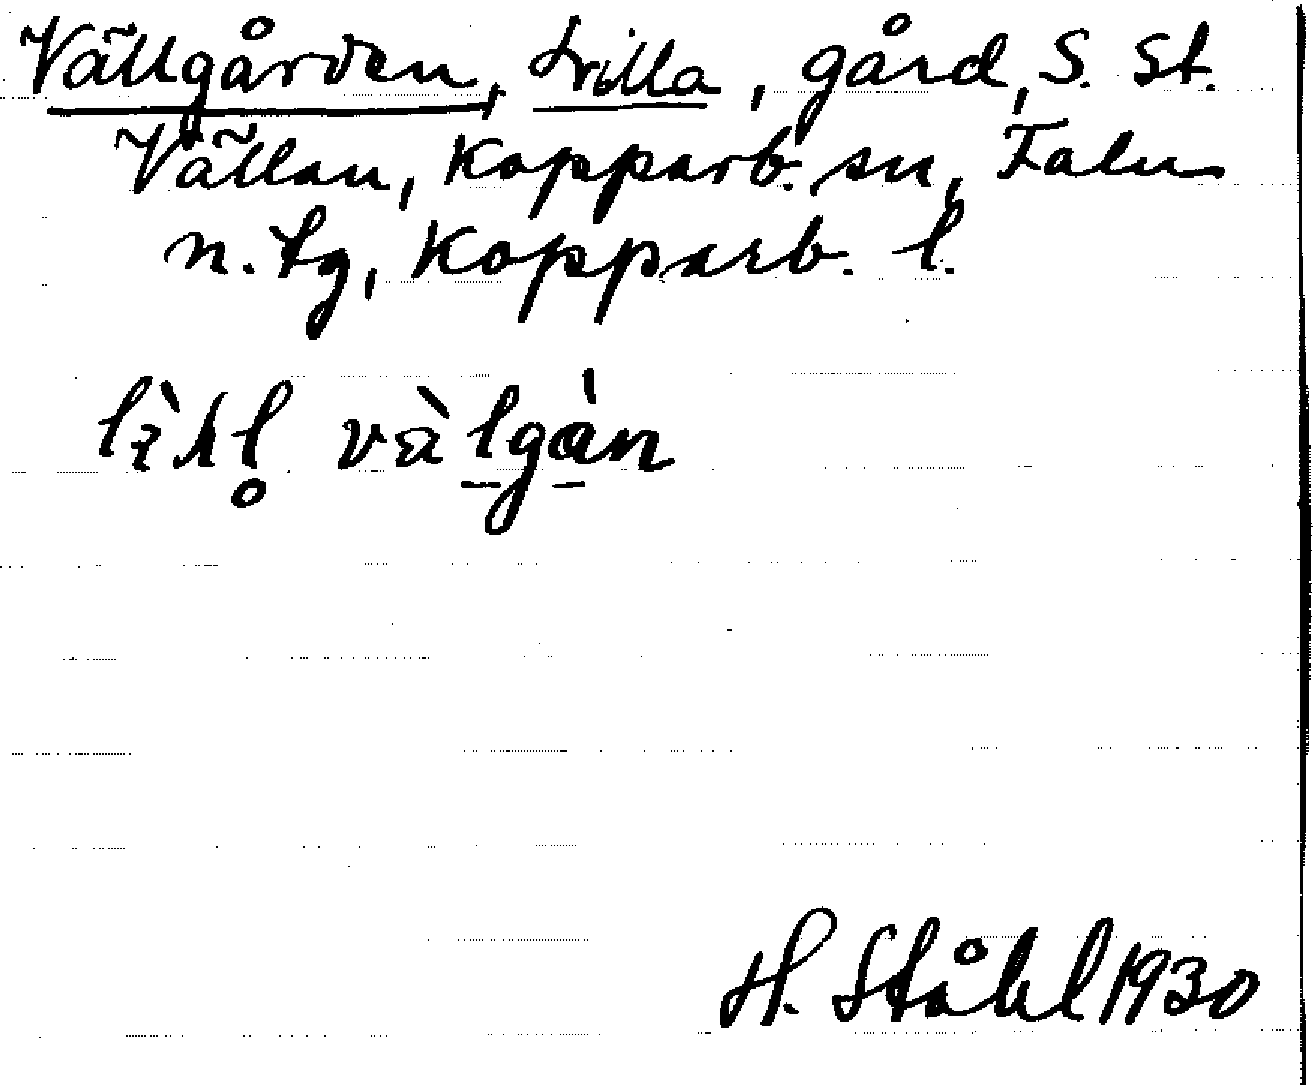 Vällgården, Lilla, gård, S. St.
Vällan, Kopparb. sn, Falu
n. tg, Kopparb. l.
vàlgàn
H. Ståhl 1930